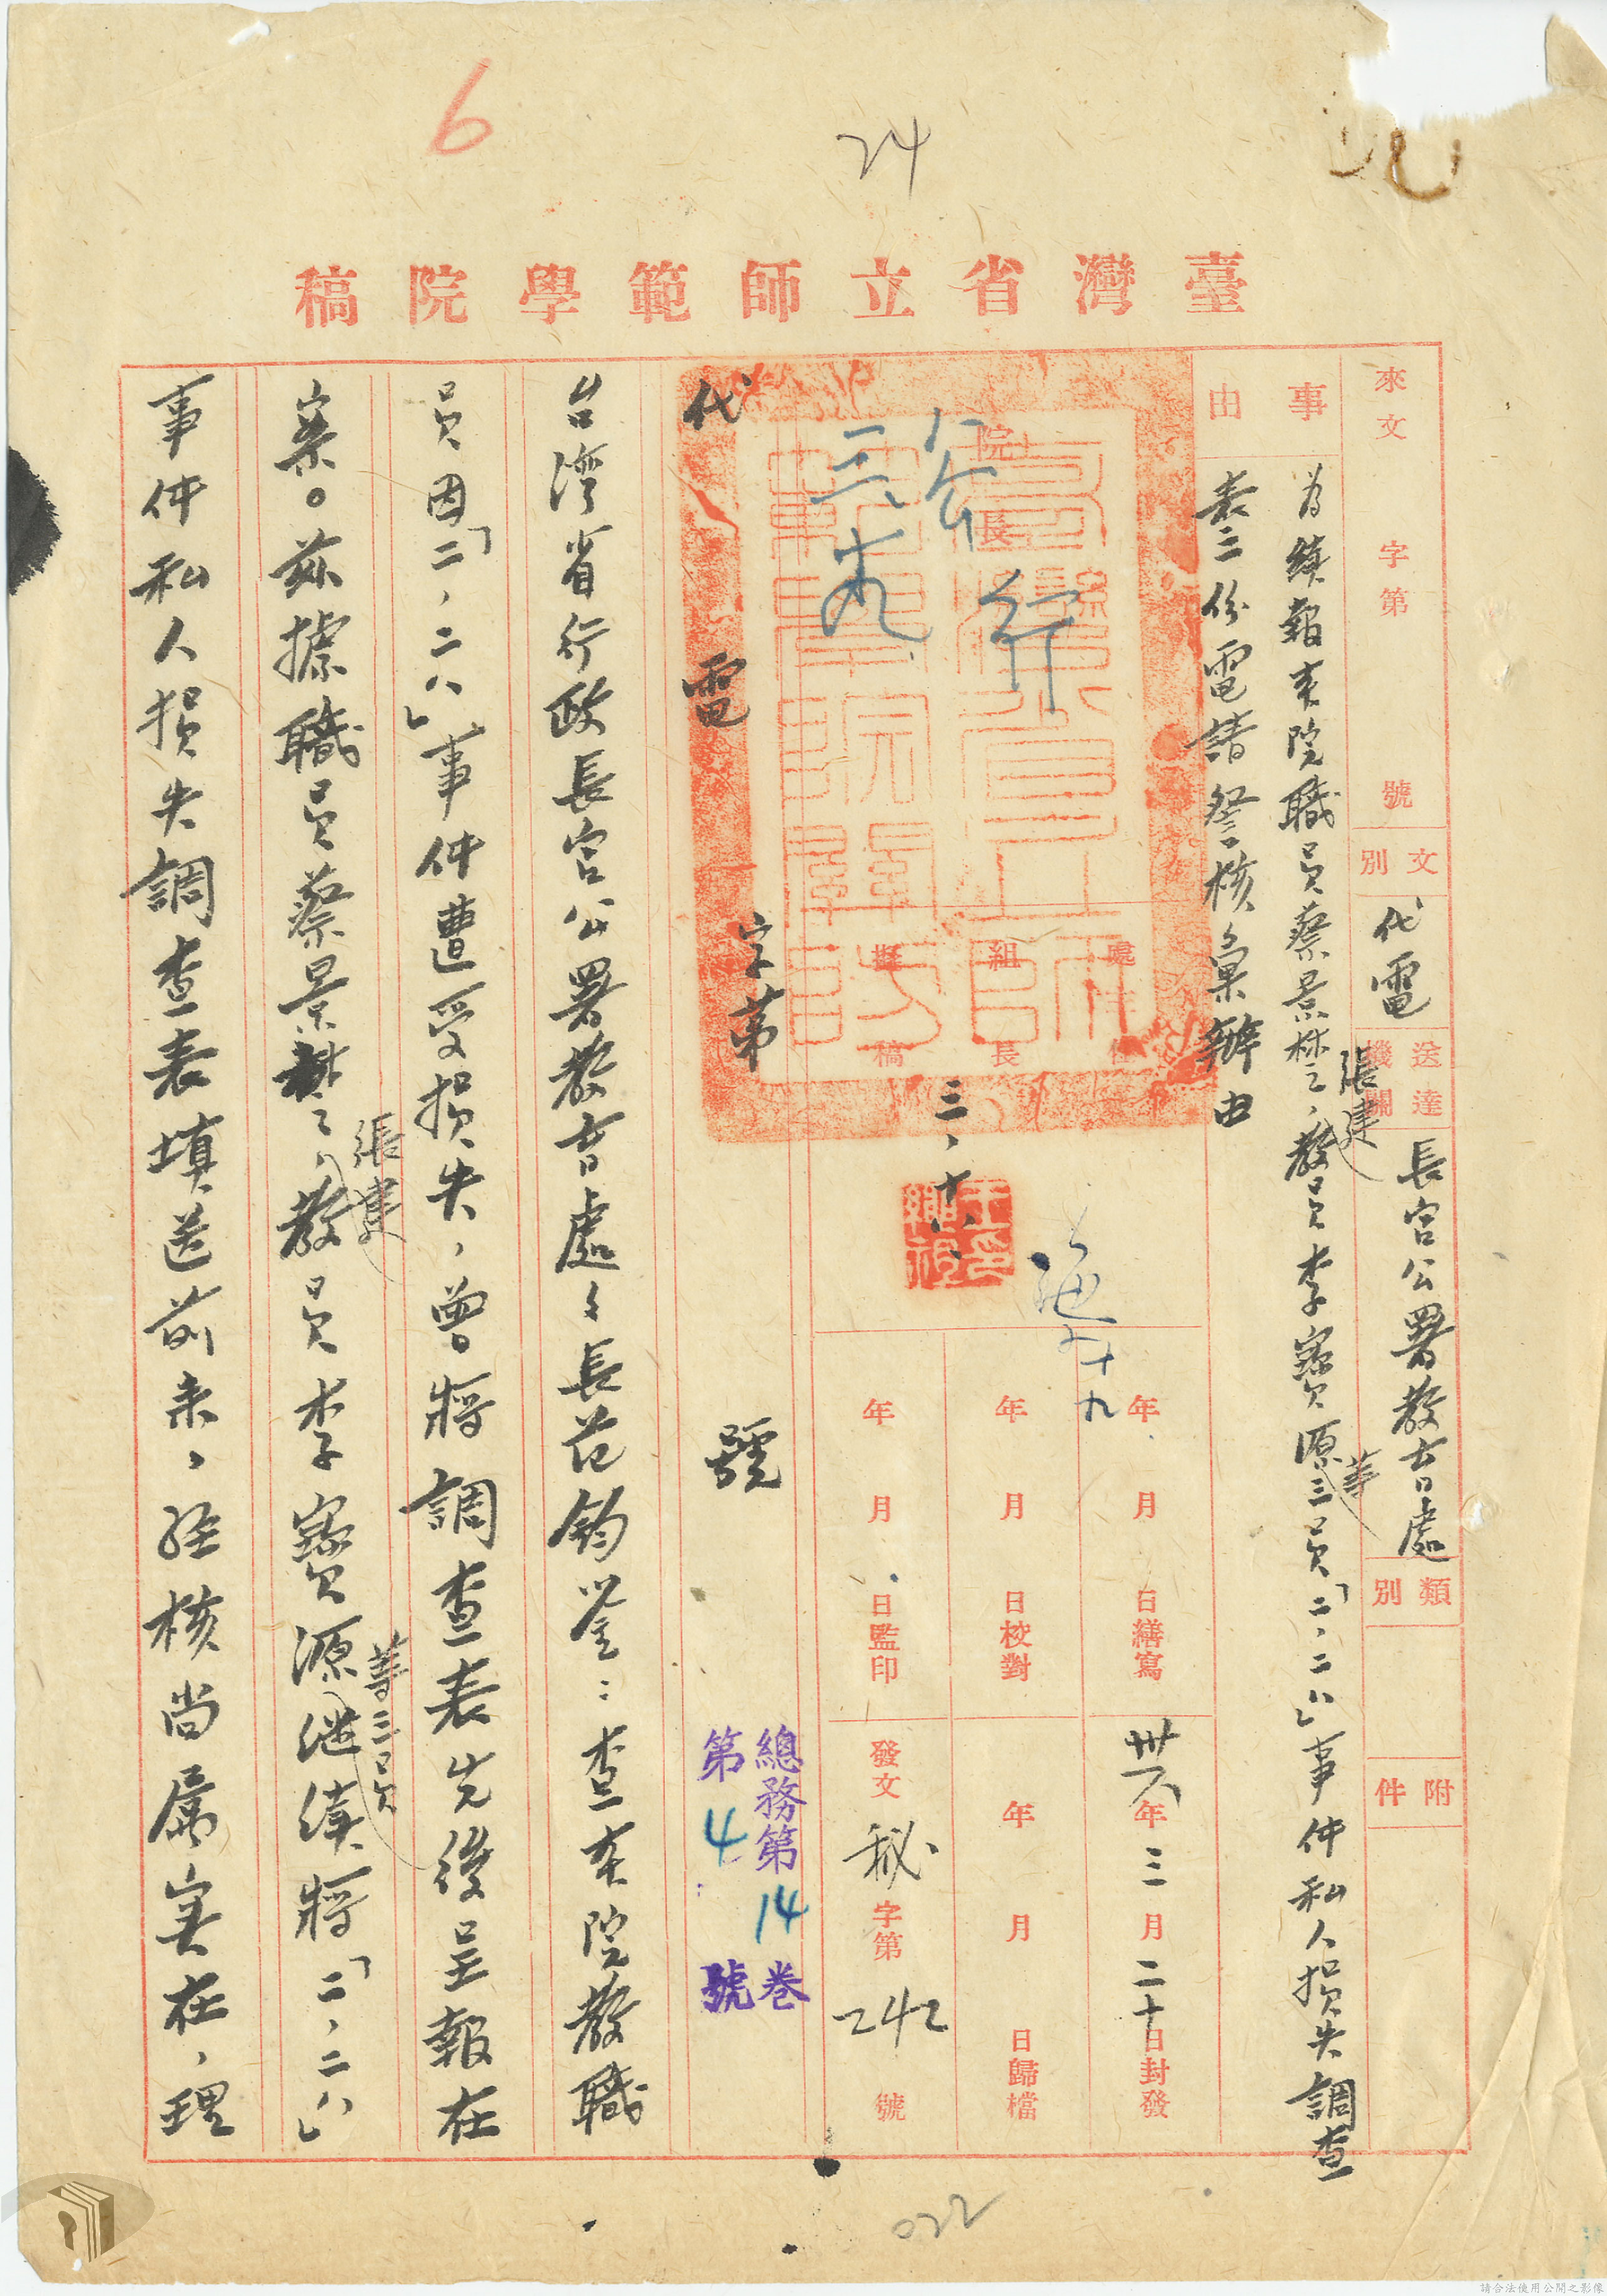 6
24
臺灣省立師範學院稿
來文 字第 號
文別 代電
送達機關 長官公署教育處
類別
附件
事由
為續報本院職員蔡景林、張建、教員李寶源等三員「二、二八」事件私人損失調查
表三份電請詧核彙辦由
院長
公
行
三、
處 主任
組長
擬稿
三、十八、
十九
年 月 日繕寫
年 月 日校對
年 月 日監印
卅六年三月二十日封發
年 月 日歸檔
發文 秘字第242號
代電 字第 號
總務第14卷
第4號
台灣省行政長官公署教育處處長范鈞鑒：查本院教職
員因「二、二八」事件遭受損失，曾將調查表先後呈報在
案。茲據職員蔡景林、張建、教員李寶源等三員繼續將「二、二八」
事件私人損失調查表填送前來，經核尚屬實在，理
022
請合法使用公開之影像